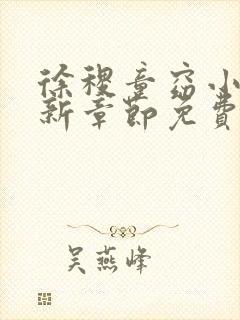 徐稷童窈小
新章節免費
吴燕峰